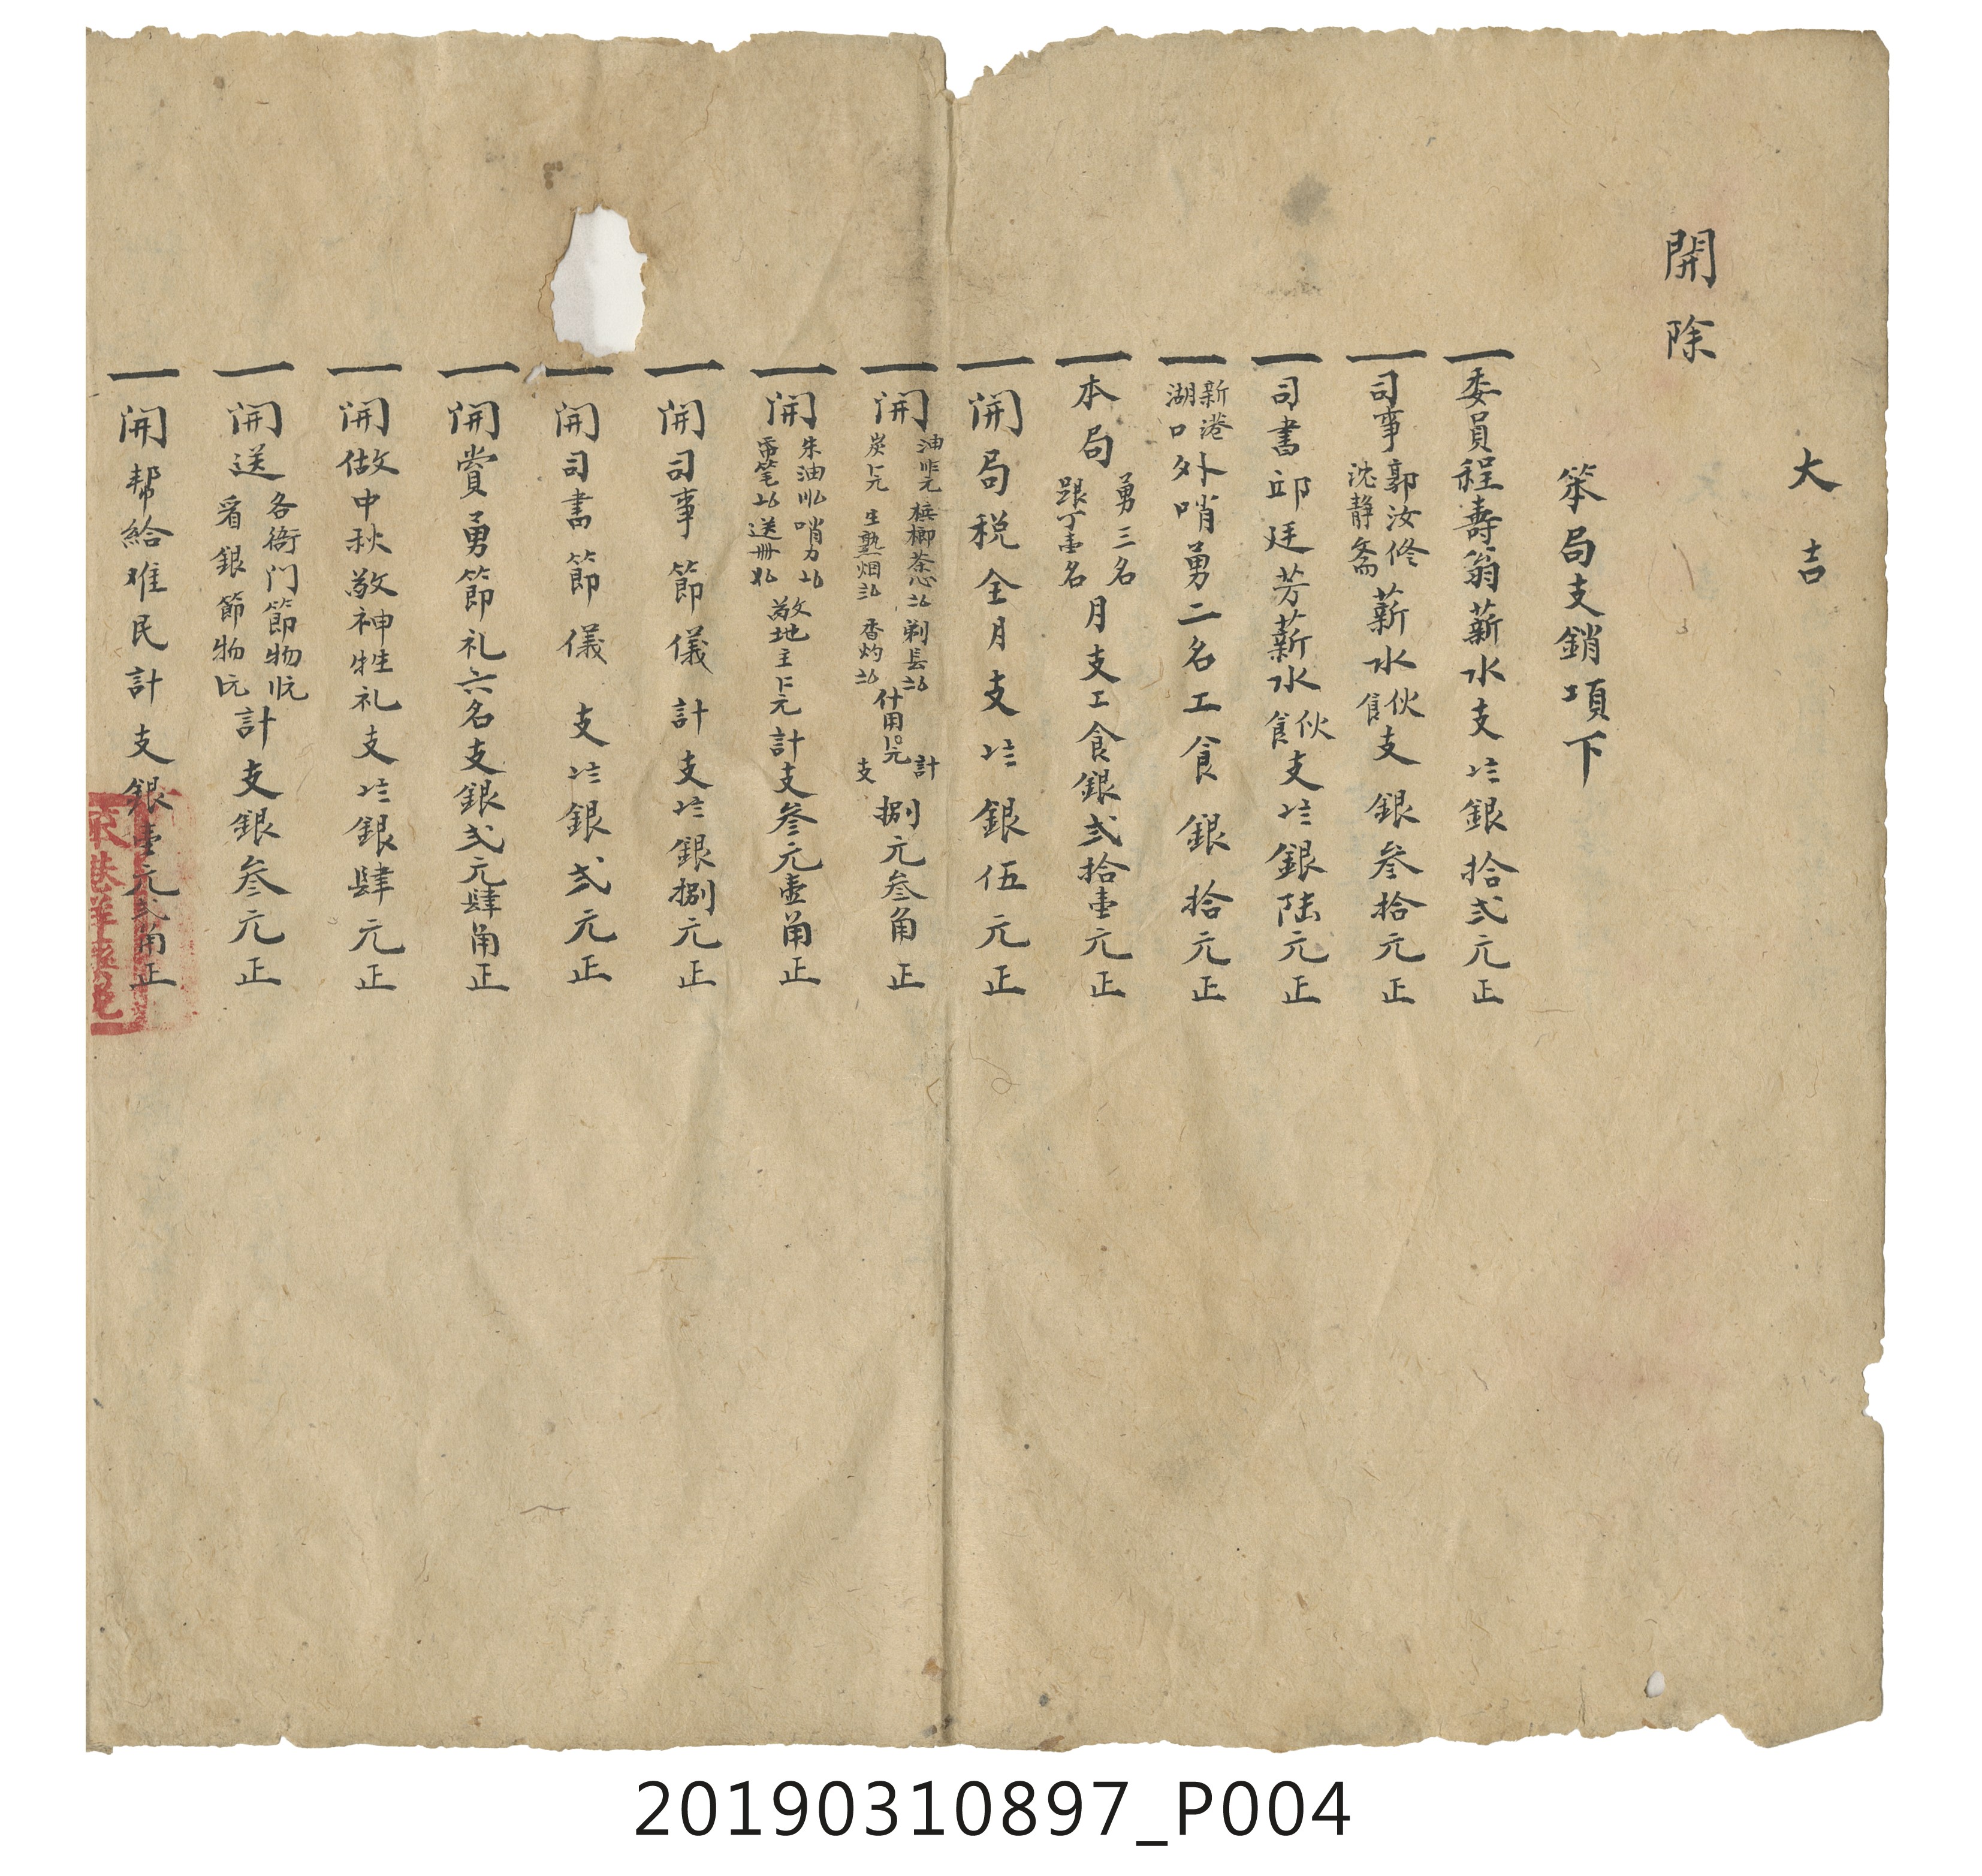 大吉
開除
笨局支銷項下
一委員程壽翁薪水支銀拾弍元正
一司事郭汝修沈静斋薪水伙食支銀叁拾元正
一司書邱廷芳薪水伙食支銀陸元正
一新港湖口外哨勇二名工食銀拾元正
一本局勇三名跟丁壹名月支工食銀弍拾壹元正
一開局税全月支銀伍元正
一開油檳榔茶心剃長炭生熟烟香灼什用計支捌元叁角正
一開朱油哨力送册敬地主計支叁元壹角正
一開司事節儀計支銀捌元正
一開司書節儀支銀弍元正
一開賞勇節礼六名支銀弍元肆角正
一開做中秋敬神牲礼支銀肆元正
一開送各衙门節物看銀節物計支銀叁元正
一開帮給难民計支銀壹元弍角正
20190310897_P004